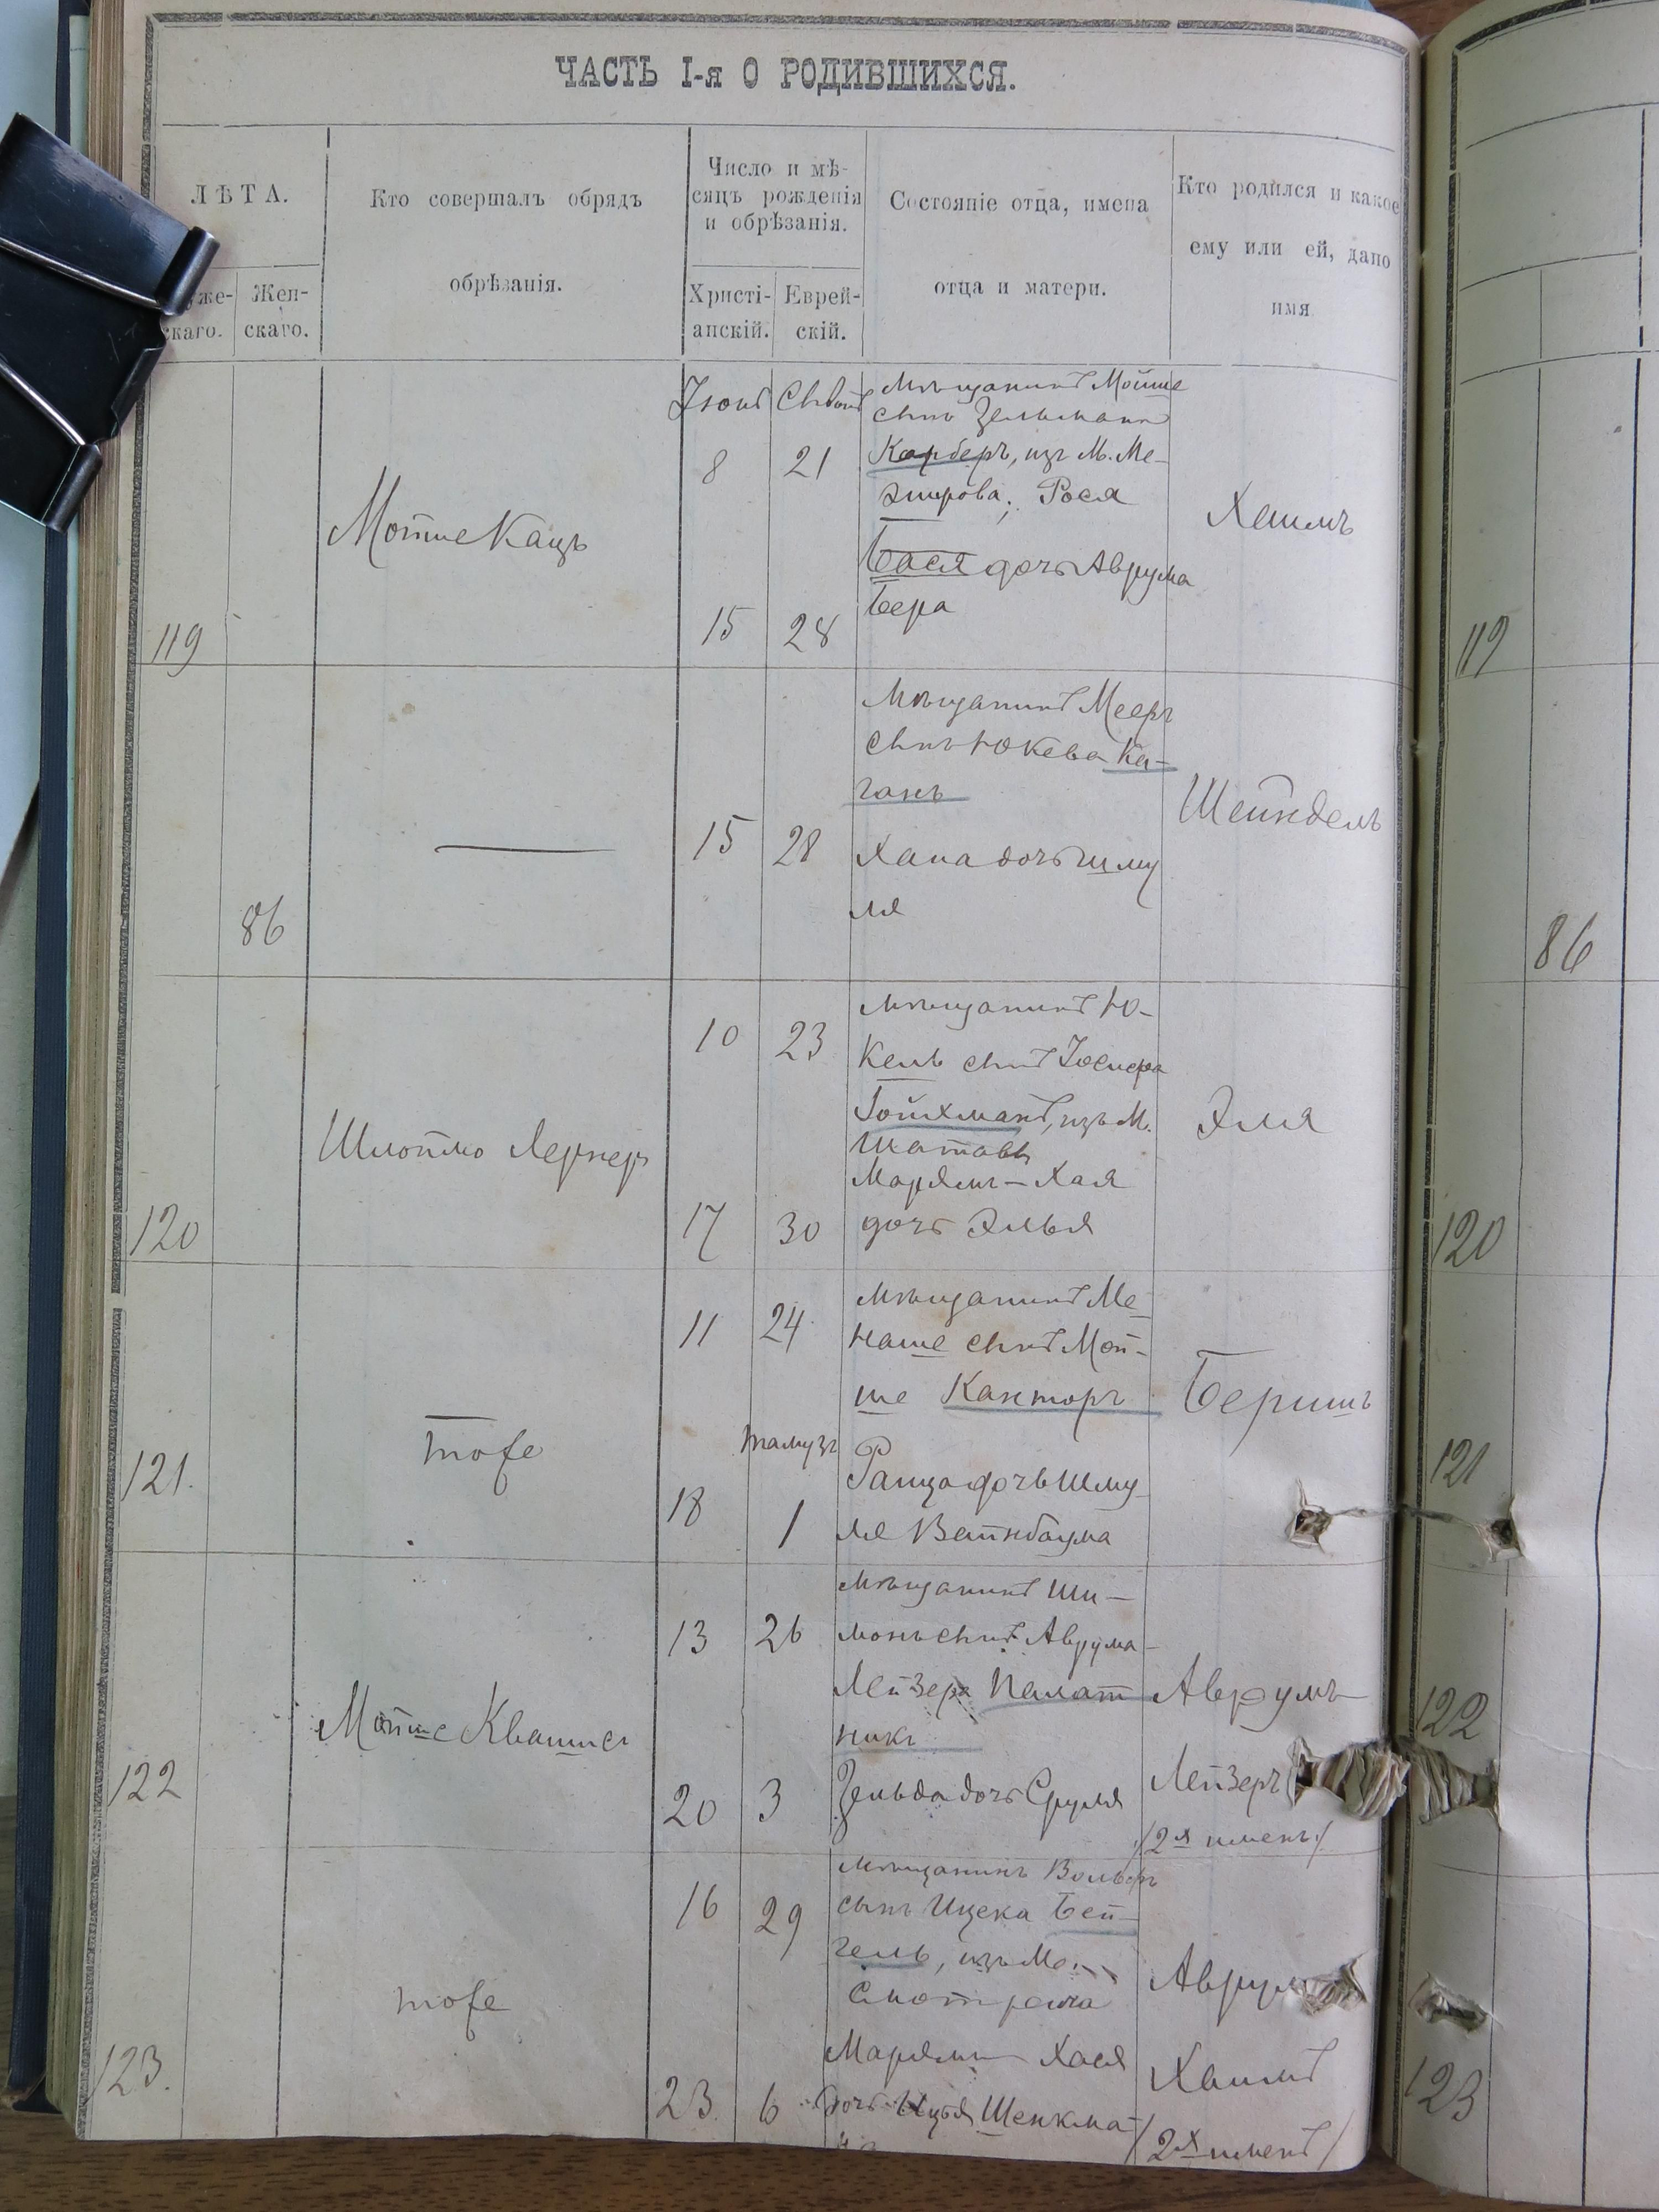 ЧАСТЬ I-я О РОДИВШИХСЯ.
ЛѢТА.
скаго.
Жен-
скаго.
Кто совершалъ обрядъ
обрѣзанія.
Число и мѣ-
сяцъ рожденія
и обрѣзанія.
Христі-
анскій.
Еврей-
скій.
Состояніе отца, имена
отца и матери.
Кто родился и какое
ему или ей, дано
имя
119
Мотше Кацъ
Іюнь
8
15
Сивонъ
21
28
Мѣщанинъ Мойше
сынъ Зельмана
Карберъ, изъ М. Ме-
жирова; Рося
Бася дочь Аврума
Бера
Хаимъ
119
86
15
28
Мѣщанинъ Мееръ
сынъ Юкева Ка-
ганъ
Хана дочь Шму
ля
Шейндель
86
120
Шлоймо Лернеръ
10
17
23
30
Мѣщанинъ Ю-
кель сынъ Іосифа
Гойхманъ, изъ М.
Шатавы
Марьямъ-Хая
дочь Элья
Эля
120
121.
тоже
11
18
24
тамузъ
1
Мѣщанинъ Ме
наше сынъ Мой-
ше Канторъ
Раица дочь Шму
ля Вайнбаума
Беришъ
121
122
Мойше Квашис
13
20
26
3
Мѣщанинъ Ши-
монъ сынъ Аврума-
Лейзера Палат
никъ
Зельда дочь Сруля
Аврумъ-
Лейзеръ
/2х именъ/
122
123.
тоже
16
23.
29
6
Мѣщанинъ Вольфъ
сынъ Ицека Бей-
гель, изъ М.
Смотрича
Марьямъ Хася
дочь Шенкма
на
Аврум
Хаимъ
/2х именъ/
123